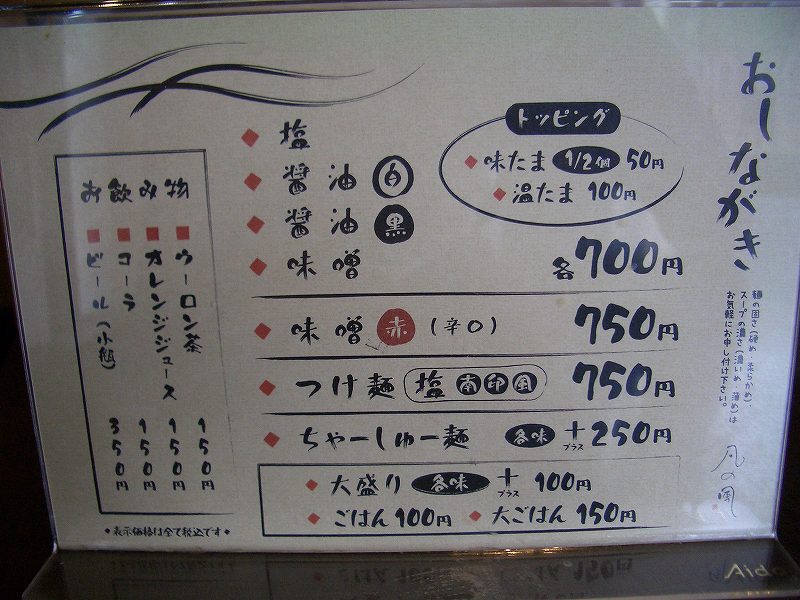 おしながき
麺の固さ(硬め・柔らかめ)、
スープの濃さ(濃いめ・薄め)は
お気軽にお申し付け下さい。
トッピング
味たま 1/2個 50円
温たま 100円
塩
醤油 白
醤油 黒
味噌
各700円
味噌 赤 (辛口) 750円
つけ麺 塩 南印風 750円
ちゃーしゅー麺 各味 +プラス 250円
大盛り 各味 +プラス 100円
ごはん 100円 大ごはん 150円
お飲み物
ウーロン茶 150円
オレンジジュース 150円
コーラ 150円
ビール(小瓶) 350円
◆表示価格は全て税込です◆